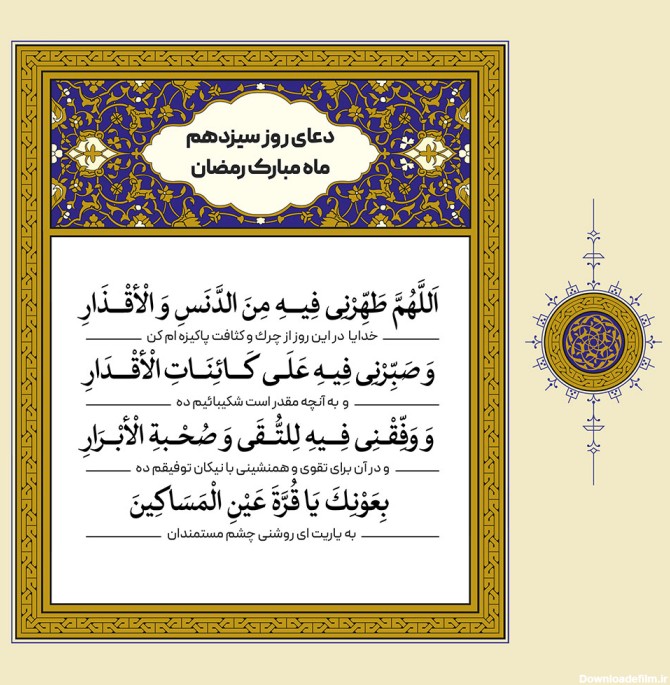 دعای روز سیزدهم
ماه مبارک رمضان
اَللَّهُمَّ طَهِّرْنِی فِیـهِ مِنَ الدَّنَسِ وَ الْأَقْـذَارِ
خدایا در این روز از چرک و کثافت پاکیزه ام کن
وَ صَبِّرْنِی فِیـهِ عَلَـی کَـائِنَـاتِ الْأَقْـدَارِ
و به آنچه مقدر است شکیبائیم ده
وَ وَفِّقْـنِی فِـیهِ لِلتُّـقَی وَ صُحْـبةِ الْأَبْـرَارِ
و در آن برای تقوی و همنشینی با نیکان توفیقم ده
بِعَوْنِكَ یَا قُرَّةَ عَیْنِ الْمَسَاكِینَ
به یاریت ای روشنی چشم مستمندان
Downloadefilm.ir